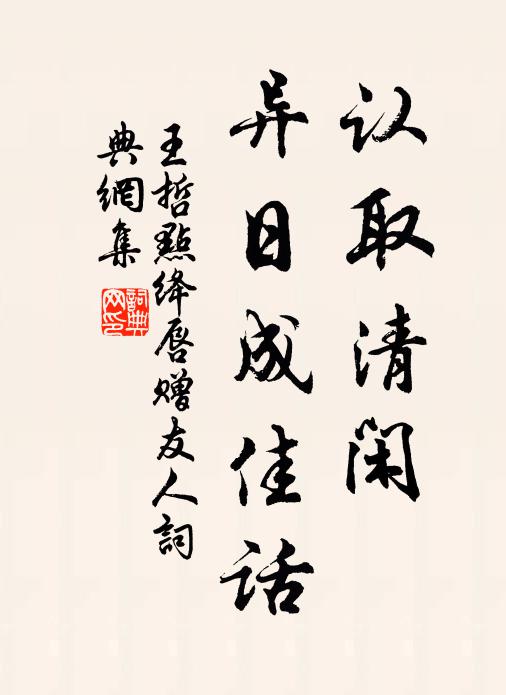 认取清闲
异日成佳话
王哲點绛唇赠友人詞
典網集
詞典
网印